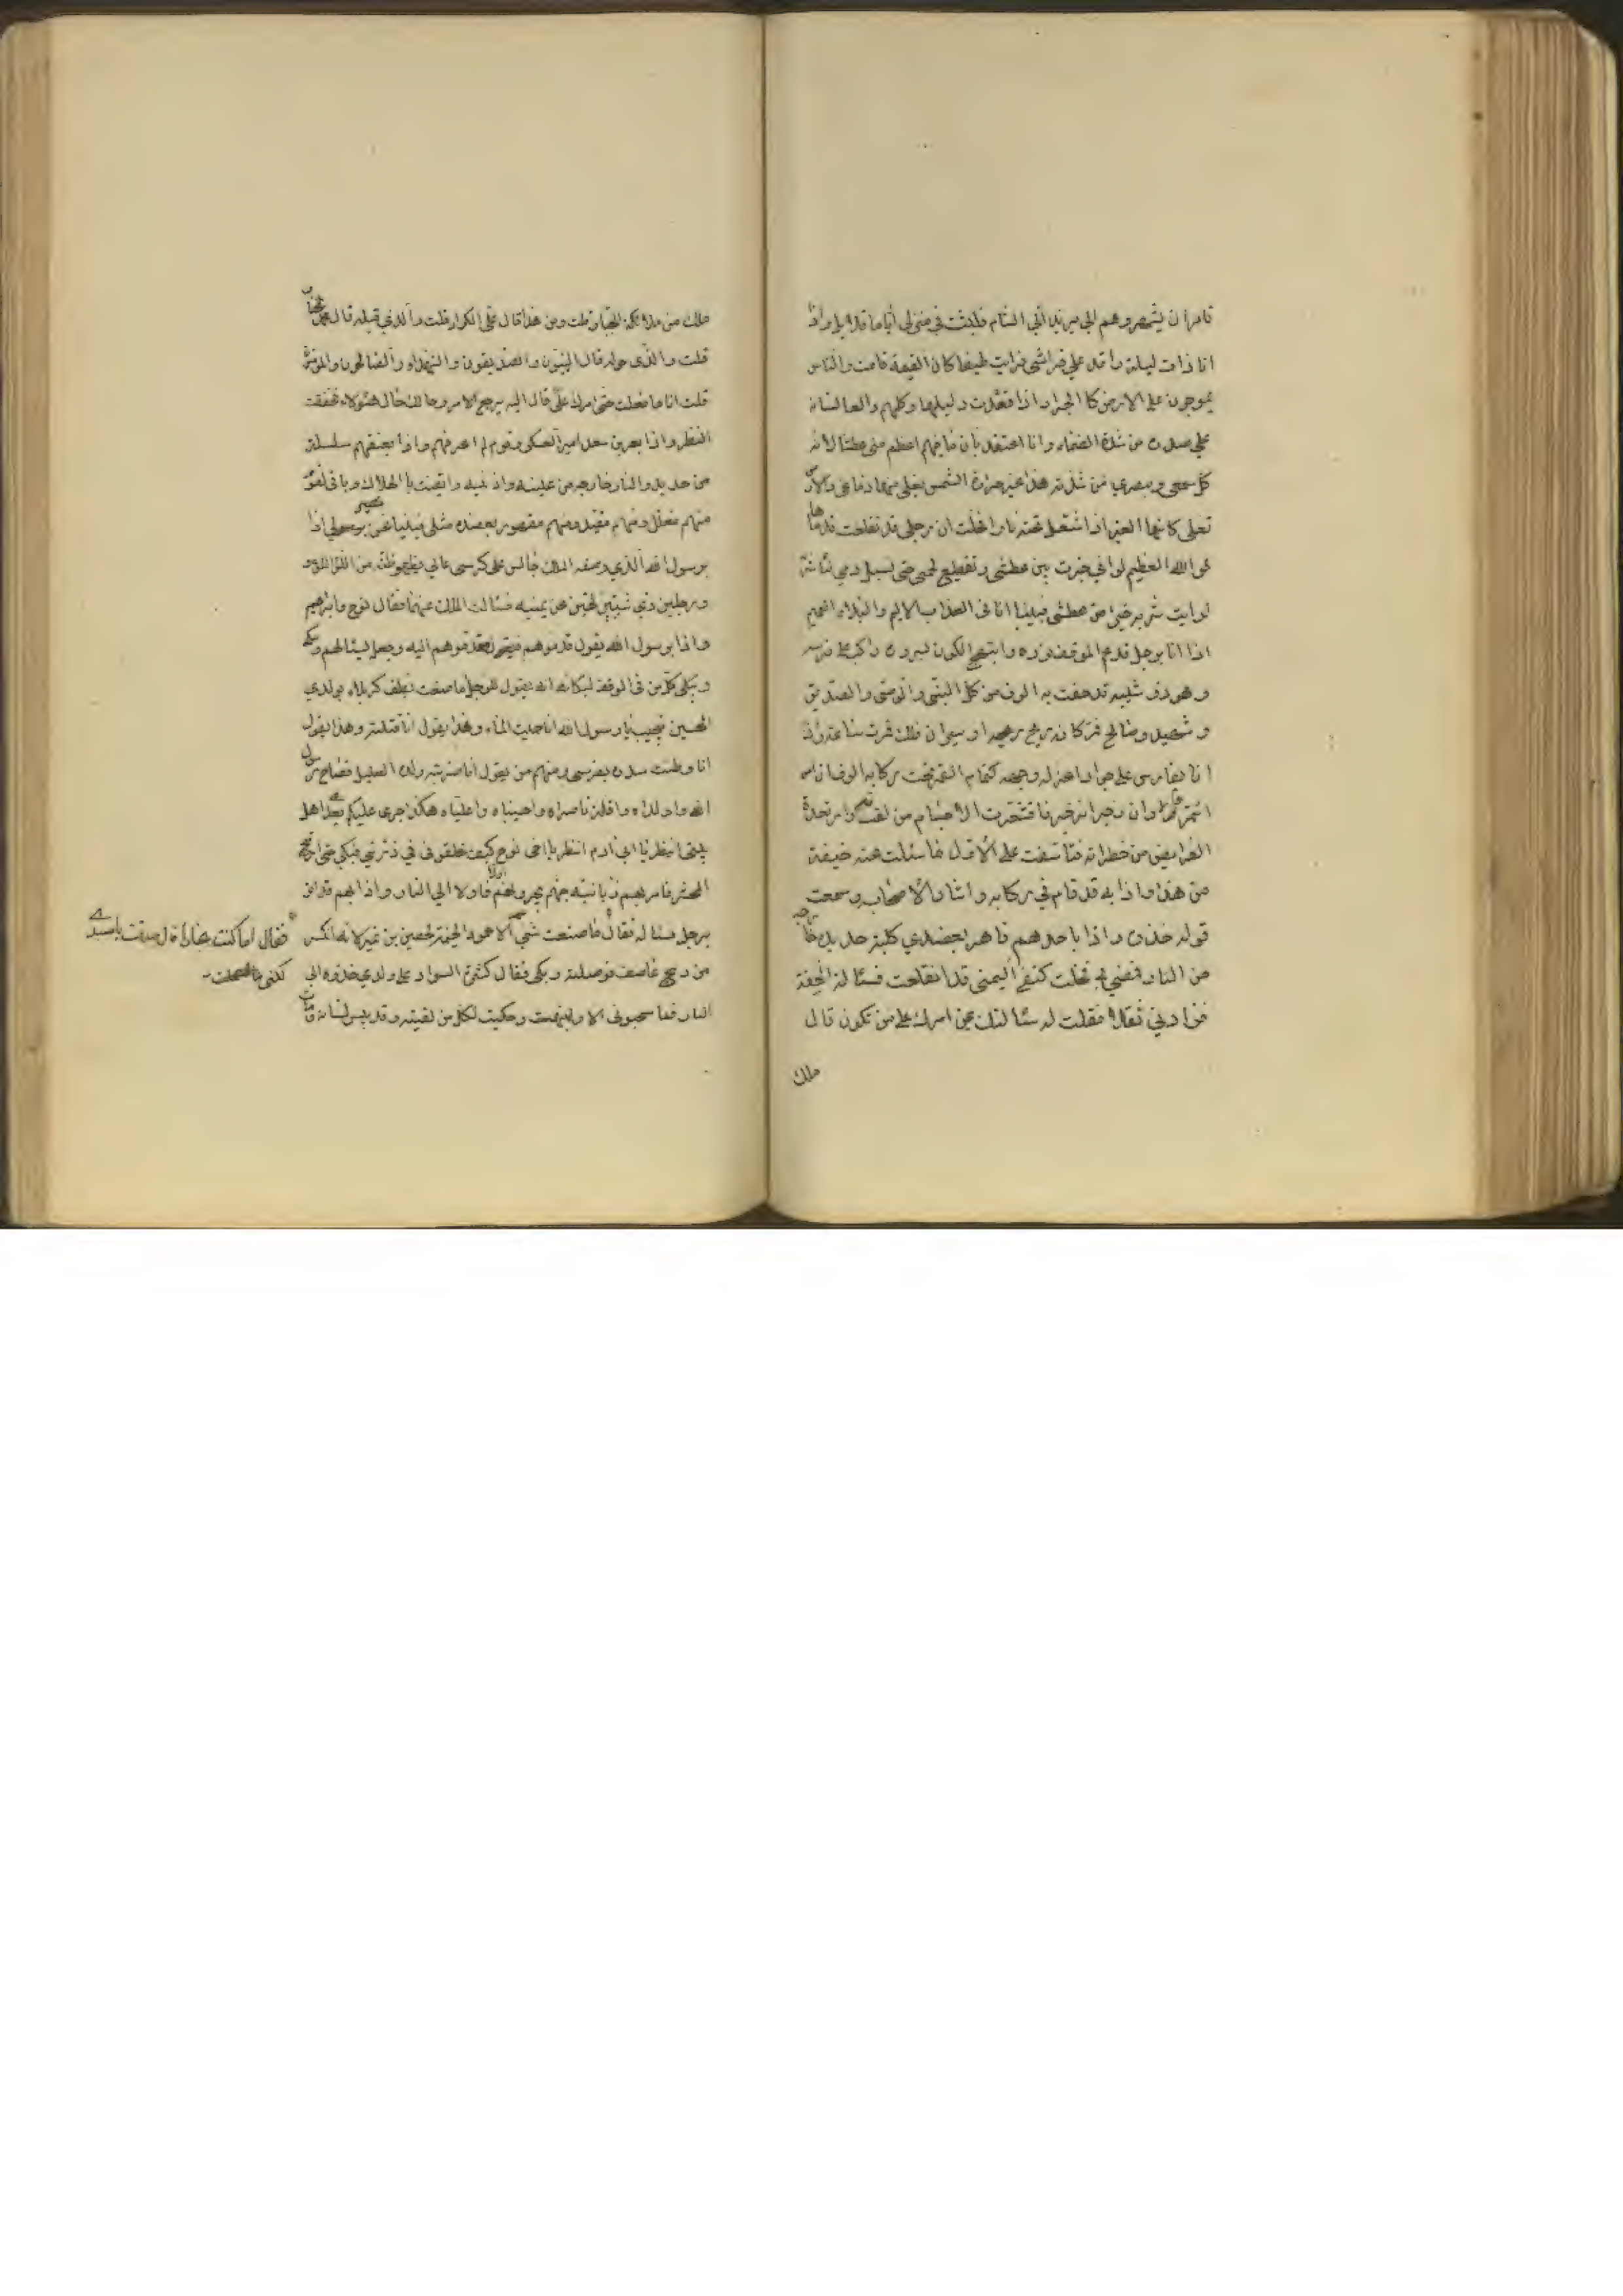 فامر ان يشهروهم الى يزيد الى الشام فلبثت في منزلي اياما قلايل واذا
انا ذات ليلة راقد على فراشي فرايت طيفا كان القيمة قامت والناس
يموجون على الارض كالجراد اذا فقدت دليلها وكلهم دالع لسانه
على صدره من شدة الظماء وانا اعتقد بان ما فيهم اعظم مني عطشا لانه
كل سمعي وبصري من شدته هذا غير حرارة الشمس يغلي منها دماغي والارض
تغلي كانها القير اذا اشتعل تحته نار فخلت ان رجلي قد تقلعت قدماها
فوالله العظيم لو اني خيرت بين عطشي وتقطيع لحمي حتى يسيل دمي لاشربه
لرايت شربه خيرا من عطشي فبينا انا في العذاب الاليم والبلاء العميم
اذا انا برجل قد عم الموقف نوره وابتهج الكون بسروره راكب على فرس
وهو ذو شيبة قد حفت به الوف من كل نبي ووصي وصديق
وشهيد وصالح فمر كانه ريح او سيران فلك فمرت ساعة واذا
انا بفارس على جواد اغر له وجه كتمام القمر تحت ركابه الوف ان امر
ائتمروا وان زجر انزجروا فاقشعرت الاجسام من لفتاته وارتعدت
الفرايص من خطراته فتاسفت على الاول ما سئلت عنه خيفة
من هذا واذا به قد قام في ركابه واشار الى اصحابه وسمعت
قوله خذوه واذا باحدهم قاهر بعضدي كلبة حديد خارجة
من النار فمضى بي فخلت كتفي اليمنى قد انقلعت فسئالته الخفة
فزادني ثقلا فقلت له سئالتك بمن امرك علي من تكون قال
ملك
ملك من ملائكة الجبار قلت ومن هذا قال علي الكرار قلت والذي قبله قال محمد المختار
قلت والذي حوله قال النبيون والصديقون والشهداء والصالحون والمؤمنون
قلت انا ما فعلت حتى امرك علي قال اليه يرجع الامر وحالك حال هؤلاء فحققت
النظر واذا بعمر بن سعد امير العسكر وقوم لم اعرفهم واذا بعنقه سلسلة
من حديد والنار خارجة من عينيه واذنيه فايقنت بالهلاك وباقي القوم
منهم مغلل ومنهم مقيد ومنهم مقهور بعضده مثلي فبينا نحن نسير واذا
برسول الله الذي وصفه الملك جالس على كرسي عالي يزهو اظنه من اللؤلؤ
ورجلين ذي شيبتين بهيتين عن يمينه فسئالت الملك عنهما فقال نوح وابراهيم
واذا برسول الله يقول قدموهم فقدموهم اليه وجعل يسئالهم ويبكي
ويبكي كل من في الموقف لبكائه لانه يقول للرجل ما صنعت بطف كربلاء بولدي
الحسين فيجيب يا رسول الله انا حميت الماء وهذا يقول انا قتلته وهذا يقول
انا وطئت صدره بفرسي ومنهم من يقول انا ضربت ولده العليل فصاح رسول
الله واولداه واقلة ناصراه واحسيناه واعلياه هكذا جرى عليكم بعدي اهل
بيتي انظر يا ابي ادم انظر يا اخي نوح كيف خلفوني في ذريتي فبكوا حتى ارتج
المحشر فامر بهم زبانية جهنم يجرونهم اولا فاولا الى النار واذا بهم قد اتوا
برجل فسئاله فقال ما صنعت شيئا الا عمود الخيمة لحصين بن نمير لانه انكسر
من ريح عاصف فوصلته فبكى وقال كثرت السواد على ولدي خذوه الى
النار فما سحبوني الا وانتبهت وحكيت لكل من لقيته وقد يبس لسانه ومات
فقال اما كنت نجارا قال صدقت يا سيدي
لكني ما عملت